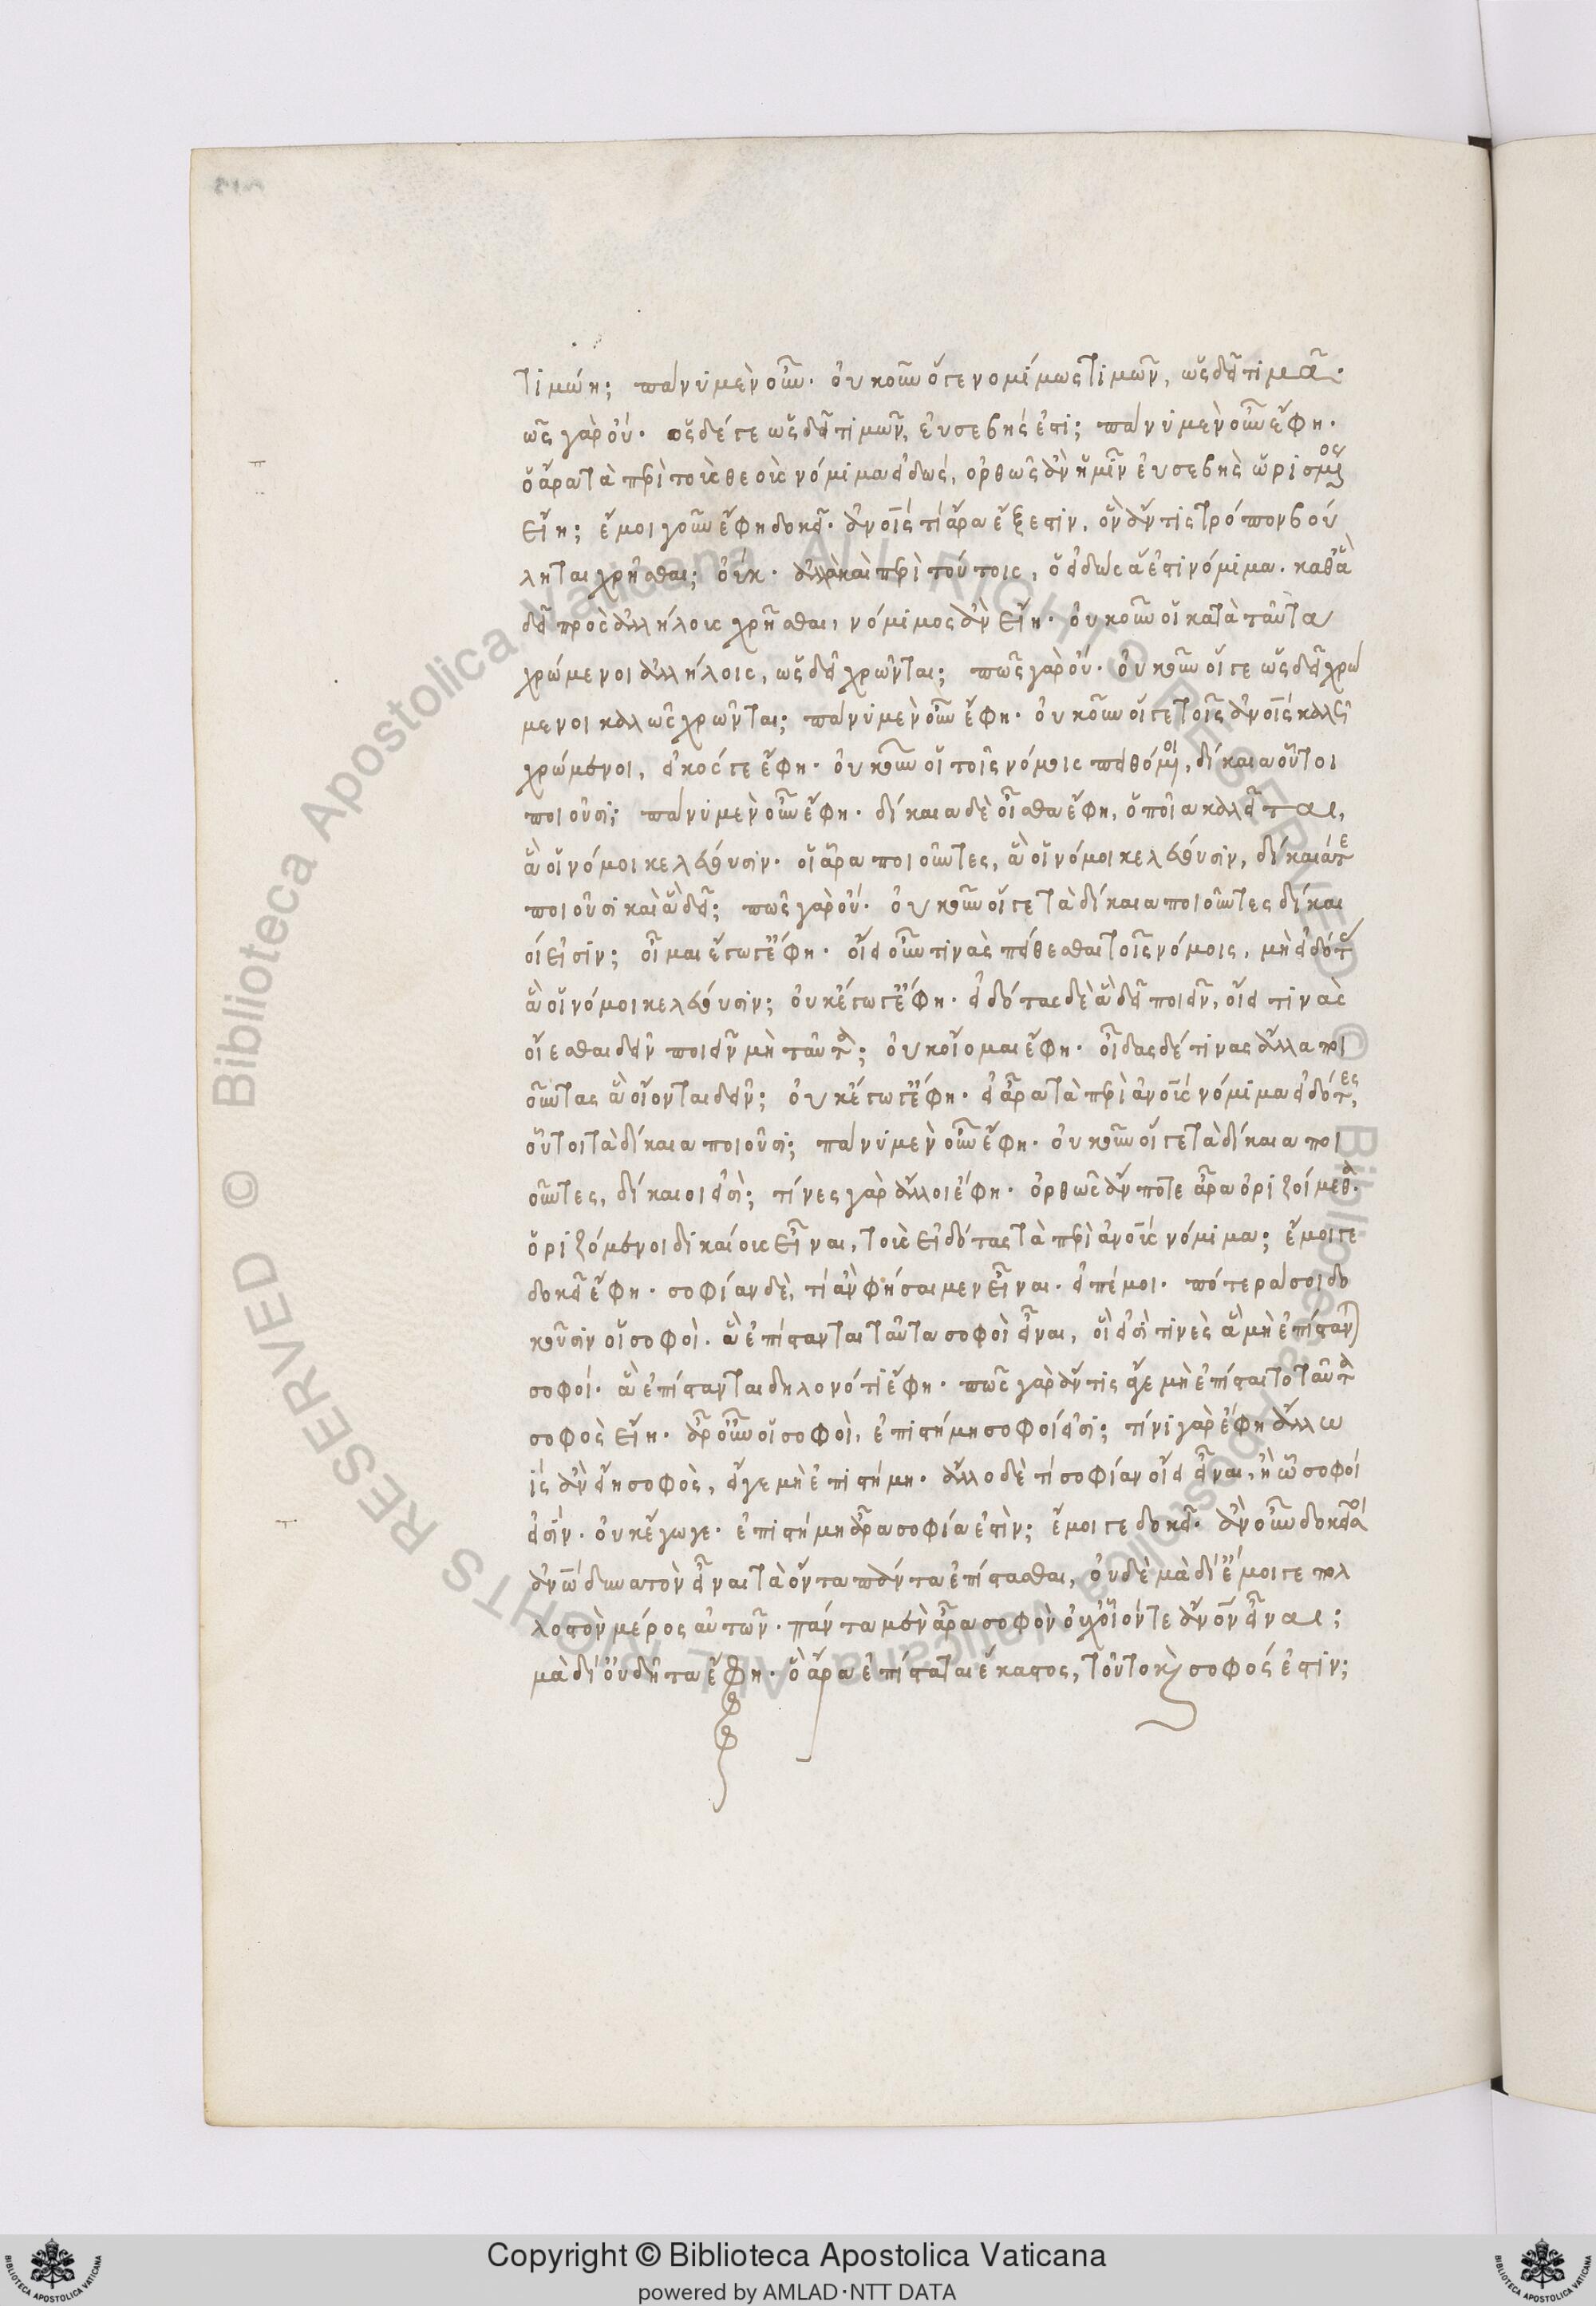 τιμώη; πάνυ μὲν οὖν. οὐκοῦν ὅγε νομίμως τιμῶν, ὡς δεῖ τιμᾷ.
πῶς γὰρ οὔ. ὁ δέ γε ὡς δεῖ τιμῶν, εὐσεβής ἐστι; πάνυ μὲν οὖν ἔφη.
ὁ ἄρα τὰ περὶ τοὺς θεοὺς νόμιμα εἰδώς, ὀρθῶς ἂν ἡμῖν εὐσεβὴς ὡρισμένος
εἴη; ἐμοὶ γοῦν ἔφη δοκεῖ. ἀνοις τί ἄρα ἔξεστιν, ὃν ἄν τις τρόπον βού
ληται χρῆσθαι; οὔκ. ἀλλὰ καὶ περὶ τούτους, ὁ εἰδὼς ἅ ἐστι νόμιμα. καθ' ἃ
δεῖ πρὸς ἀλλήλους χρῆσθαι, νόμιμος ἂν εἴη. οὐκοῦν οἱ κατὰ ταῦτα
χρώμενοι ἀλλήλοις, ὡς δεῖ χρῶνται; πῶς γὰρ οὔ. οὐκοῦν οἵ γε ὡς δεῖ χρώ
μενοι καλῶς χρῶνται; πάνυ μὲν οὖν ἔφη. οὐκοῦν οἵ γε τοῖς ἀνοις καλῶς
χρώμενοι, εἰκός γε ἔφη. οὐκοῦν οἱ τοῖς νόμοις πειθόμενοι, δίκαια οὗτοι
ποιοῦσι; πάνυ μὲν οὖν ἔφη. δίκαια δὲ οἶσθα ἔφη, ὁποῖα καλεῖται,
ἃ οἱ νόμοι κελεύουσιν. οἱ ἄρα ποιοῦντες, ἃ οἱ νόμοι κελεύουσιν, δίκαιά τε
ποιοῦσι καὶ ἃ δεῖ; πῶς γὰρ οὔ. οὐκοῦν οἵ γε τὰ δίκαια ποιοῦντες δίκαι
οί εἰσιν; οἶμαι ἔγωγ' ἔφη. οἴει οὖν τινὰς πείθεσθαι τοῖς νόμοις, μὴ εἰδότας
ἃ οἱ νόμοι κελεύουσιν; οὐκ ἔγωγ' ἔφη. εἰδότας δὲ ἃ δεῖ ποιεῖν, οἴει τινὰς
οἴεσθαι δεῖν ποιεῖν μὴ ταῦτα; οὐκ οἴομαι ἔφη. οἶδας δέ τινας ἄλλα ποι
οῦντας ἃ οἴονται δεῖν; οὐκ ἔγωγ' ἔφη. οἱ ἄρα τὰ περὶ ἀνους νόμιμα εἰδότες,
οὗτοι τὰ δίκαια ποιοῦσι; πάνυ μὲν οὖν ἔφη. οὐκοῦν οἵ γε τὰ δίκαια ποι
οῦντες, δίκαιοι εἰσὶ; τίνες γὰρ ἄλλοι ἔφη. ὀρθῶς ἄν ποτε ἄρα ὁριζοίμεθα.
ὁριζόμενοι δικαίους εἶναι, τοὺς εἰδότας τὰ περὶ ἀνους νόμιμα; ἔμοιγε
δοκεῖ ἔφη. σοφίαν δὲ, τί ἂν φήσαιμεν εἶναι. εἰπέ μοι. πότερά σοι δο
κοῦσιν οἱ σοφοὶ. ἃ ἐπίστανται ταῦτα σοφοὶ εἶναι, ἢ εἰσὶ τινὲς ἃ μὴ ἐπίστανται
σοφοί. ἃ ἐπίστανται δηλονότι ἔφη. πῶς γὰρ ἄν τις ἅγε μὴ ἐπίσταιτο ταῦτα
σοφὸς εἴη. ἆρ' οὖν οἱ σοφοὶ, ἐπιστήμῃ σοφοί εἰσι; τίνι γὰρ ἔφη ἄλλω
τίς ἂν εἴη σοφὸς, εἴγε μὴ ἐπιστήμῃ. ἄλλο δὲ τί σοφίαν οἴει εἶναι, ἢ ᾧ σοφοί
εἰσίν. οὐκ ἔγωγε. ἐπιστήμη ἄρα σοφία ἐστὶν; ἔμοιγε δοκεῖ. ἆρ' οὖν δοκεῖ σοι
ἀνῳ δυνατὸν εἶναι τὰ ὄντα πάντα ἐπίστασθαι, οὐδὲ μὰ δί' ἔμοιγε πολ
λοστὸν μέρος αὐτῶν. πάντα μὲν ἄρα σοφὸν οὐχ οἷόντε ἄνον εἶναι;
μὰ δί' οὐ δῆτα ἔφη. ὃ ἄρα ἐπίσταται ἕκαστος, τοῦτο καὶ σοφός ἐστιν;
Copyright © Biblioteca Apostolica Vaticana
powered by AMLAD·NTT DATA